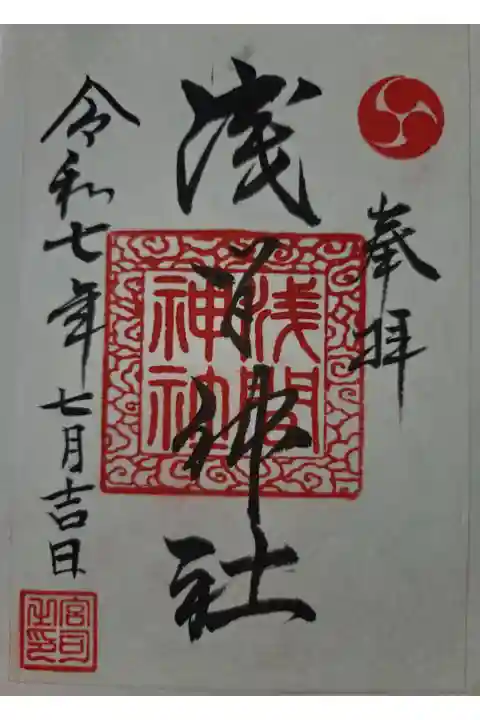 奉拝
浅間神社
令和七年七月吉日
浅間
神社
宮司
之印